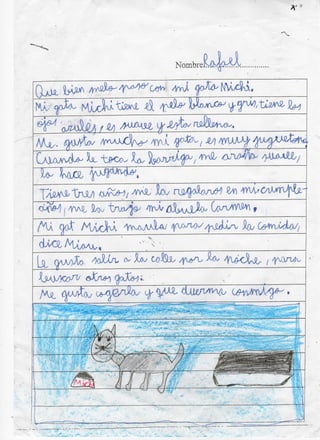 Nombre Rafael
Que bien melo paso con mi gata Michi.
Mi gata Michi tiene el pelo blanco y gris, tiene los
ojos azules, es suave y esta rellena.
Me gusta mucho mi gata, es muy juguetona
Cuando le toco la barriga, me araña suave,
lo hace jugando.
Tiene tres años, me la regalaron en mi cumple-
años, me la trajo mi abuela Carmen,
Mi gat Michi maulla para pedir la comida,
dice Miau.
Le gusta salir a la calle por la noche, para
buscar otros gatos.
Me gusta cogerla y que duerma conmigo.
Michi